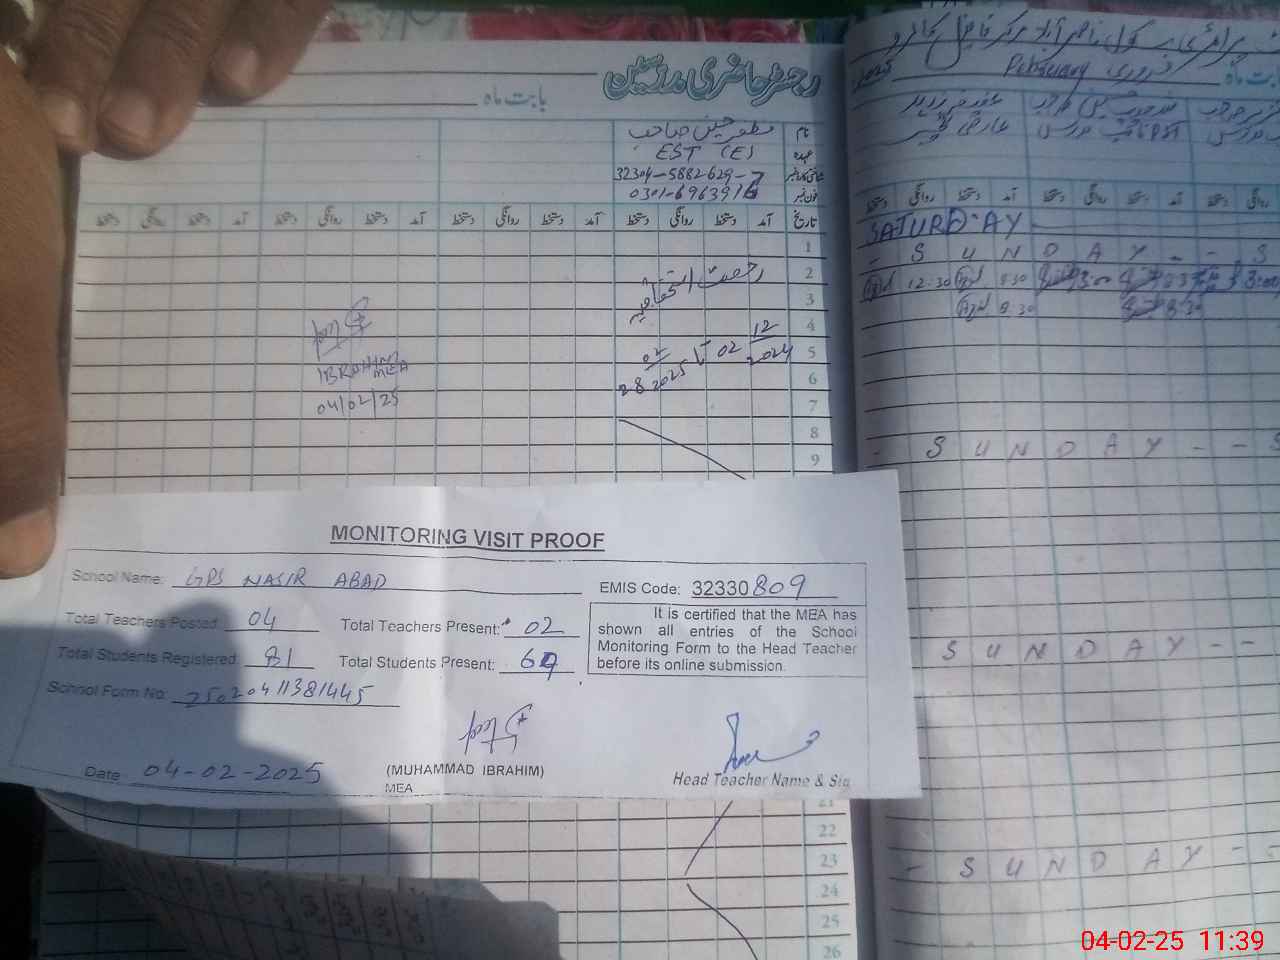 رجسٹر حاضری مدرسین
بابت ماہ
نام مظہر حسین صاحب
عہدہ EST (E)
32304-5882629-7
فون نمبر 0301-6963916
تاریخ آمد دستخط روانگی دستخط آمد دستخط روانگی دستخط آمد دستخط روانگی دستخط
1
2
3
4
5
6
7
8
9
رخصت استحقاقیہ
02 12 2024 تا 28 02 2025
IBRAHIM
MEA
04/02/25
MONITORING VISIT PROOF
School Name: GPS NASIR ABAD
EMIS Code: 32330809
Total Teachers Posted: 04 Total Teachers Present: 02
Total Students Registered: 81 Total Students Present: 69
School Form No: 25020411381445
It is certified that the MEA has
shown all entries of the School
Monitoring Form to the Head Teacher
before its online submission.
Date: 04-02-2025
(MUHAMMAD IBRAHIM)
MEA
Head Teacher Name & Sig
21
22
23
24
25
26
2025 فروری February بابت ماہ
SATURDAY
- S U N D A Y - - S
12:30 9:30 3:00
9:30 8:30
- S U N D A Y - - S
S U N D A Y - -
- S U N D A Y - -
04-02-25 11:39